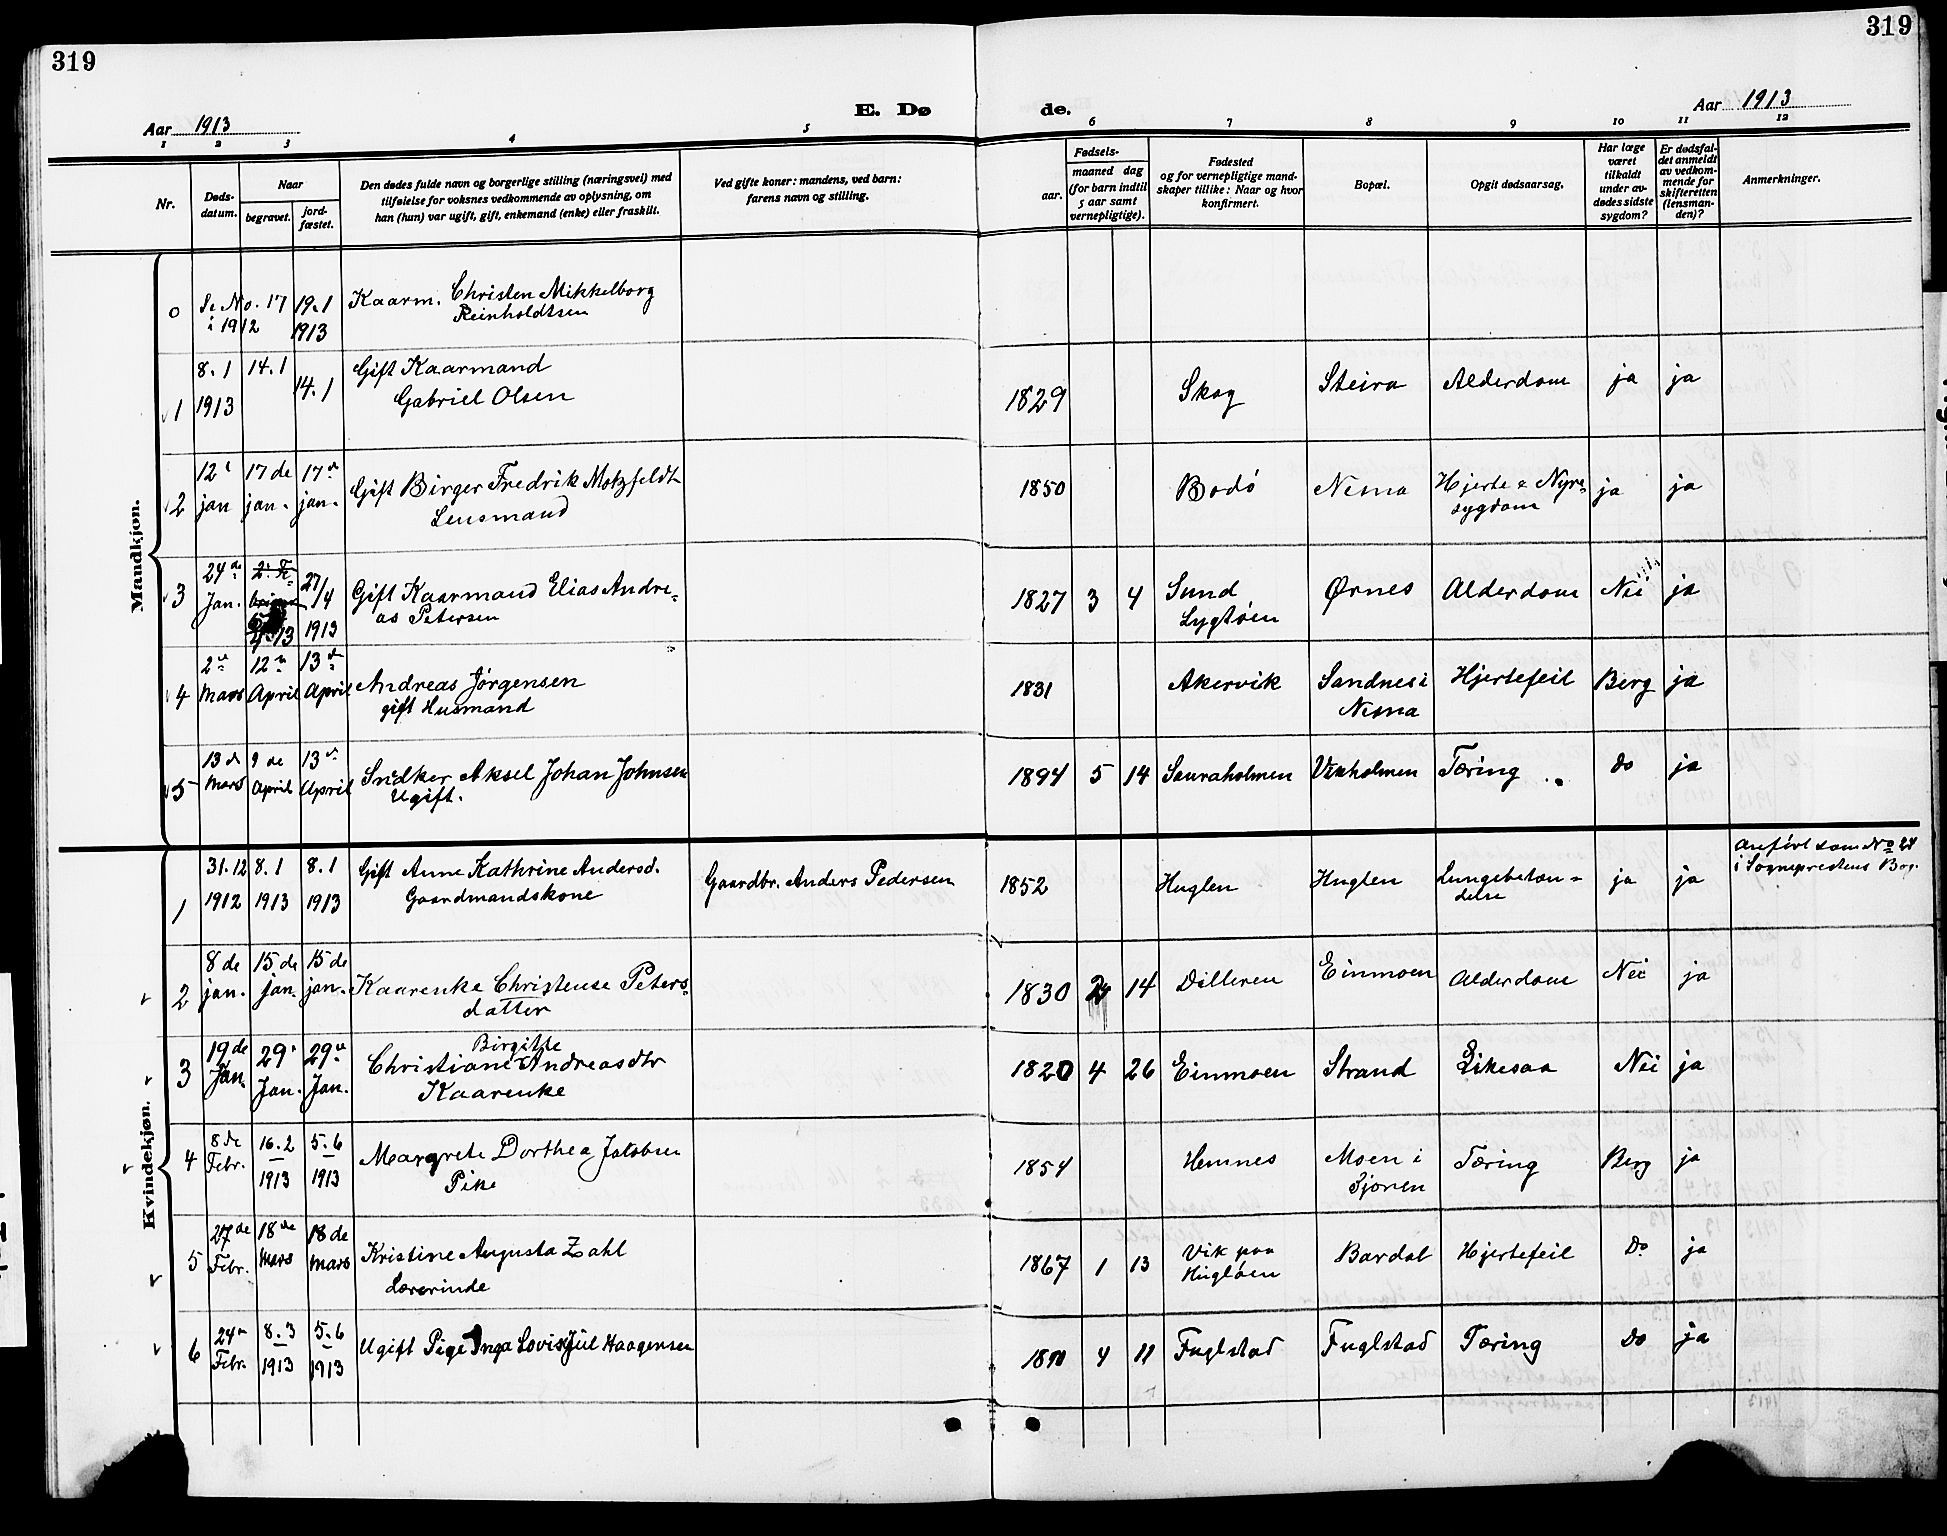 319
319
Aar 1913
E. Dø
de.
Aar 1913
1 2 3 4 5 6 7 8 9 10 11 12
Nr.
Døds-
datum.
Naar
begravet.
jord-
fæstet.
Den dødes fulde navn og borgerlige stilling (næringsvei) med
tilføielse for voksnes vedkommende av oplysning, om
han (hun) var ugift, gift, enkemand (enke) eller fraskilt.
Ved gifte koner: mandens, ved barn:
farens navn og stilling.
Fødsels-
aar.
maaned dag
(for barn indtil
5 aar samt
vernepligtige).
Fødested
og for vernepligtige mand-
skaper tillike: Naar og hvor
konfirmert.
Bopæl.
Opgit dødsaarsag.
Har læge
været
tilkaldt
under av-
dødes sidste
sygdom?
Er dødsfal-
det anmeldt
av vedkom-
mende for
skifteretten
(lensman-
den)?
Anmerkninger.
Mandkjøn.
0 Se No. 17 19.1 Kaarm. Christen Mikkelborg
i 1912 1913 Reinholdtsen
8.1 14.1 14.1 Gift Kaarmand
1 1913 Gabriel Olsen 1829 Skog Steira Alderdom ja ja
12 17 de 17 d
2 jan jan. jan. Gift Birger Fredrik Motzfeldt 1850 Bodó Nesna Hjerte & Nyre= ja ja
Lensmand sygdom
24 de 27/4
3 Jan. Gift Kaarmand Elias Andre= 1827 3 4 Sund Ørnes Alderdom Nei ja
13 1913 as Petersen
2 12 13 d
4 Mars April April Andreas Jørgensen 1831 Akervik Sandnes i Hjertefeil Berg ja
gift Husmand Nesna
13 d 9 de 13
5 Mars April April Snedker Aksel Johan Johnsen 1894 5 14 Sauraholmen Vikholmen Tæring Do ja
Ugift.
Kvindekjøn.
31.12 8.1 8.1 Gift Anne Kathrine Andersd. Gaardbr. Anders Pedersen 1852 Huglen Huglen Lungebetæn= ja ja anført som No 24
1 1912 1913 1913 Gaardmandskone delse i Sogneprestens Bog.
8 de 15 de 15 de
2 jan. jan. jan. Kaarenke Christense Peters= 1830 2 14 Dilleren Einmoen Alderdom Nei ja
datter
19 de 29 29 Birgitte
3 Jan. Jan. Jan. Christiane Andreasdtr 1820 4 26 Einmoen Strand Likesaa Nei ja
Kaarenke
8 de 16.2 5.6
4 Febr. 1913 1913 Margrete Dorthea Jakobsen 1854 Hemnes Moen i Tæring Berg ja
Pike Sjonen
27 de 18 de 18 de
5 Febr. Mars Mars Kristine Augusta Zahl 1867 1 13 Vik paa Bardal Hjertefeil Do ja
Lærerinde Hugløen
24 8.3 5.6
6 Febr. 1913 1913 Ugift Pige Inga Lovise Jul Haagensen 4 11 Fuglstad Fuglstad Tæring Do ja